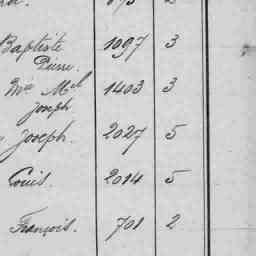 Baptiste 1097 3
Pierre.
Mel 1403 3
Joseph
Joseph. 2027 5
Louis. 2014 5
François. 701 2